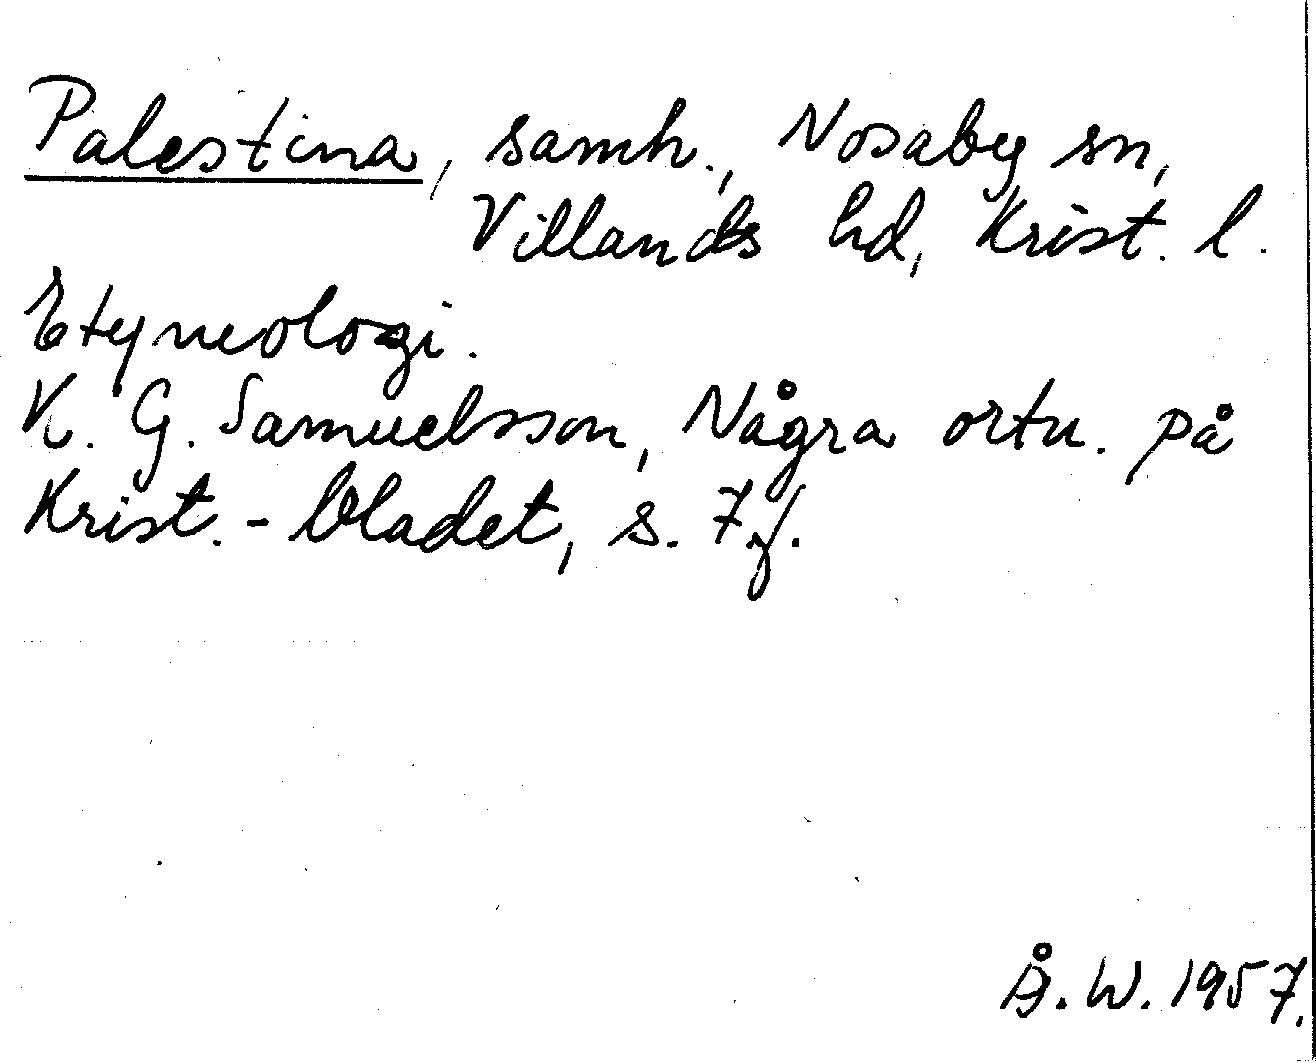 Palestina, samh., Nosaby sn,
Villands hd, Krist. l.
Etymologi.
K. G. Samuelsson, Några ortn. på
Krist.-bladet, s. 7 f.
Å. W. 1957.